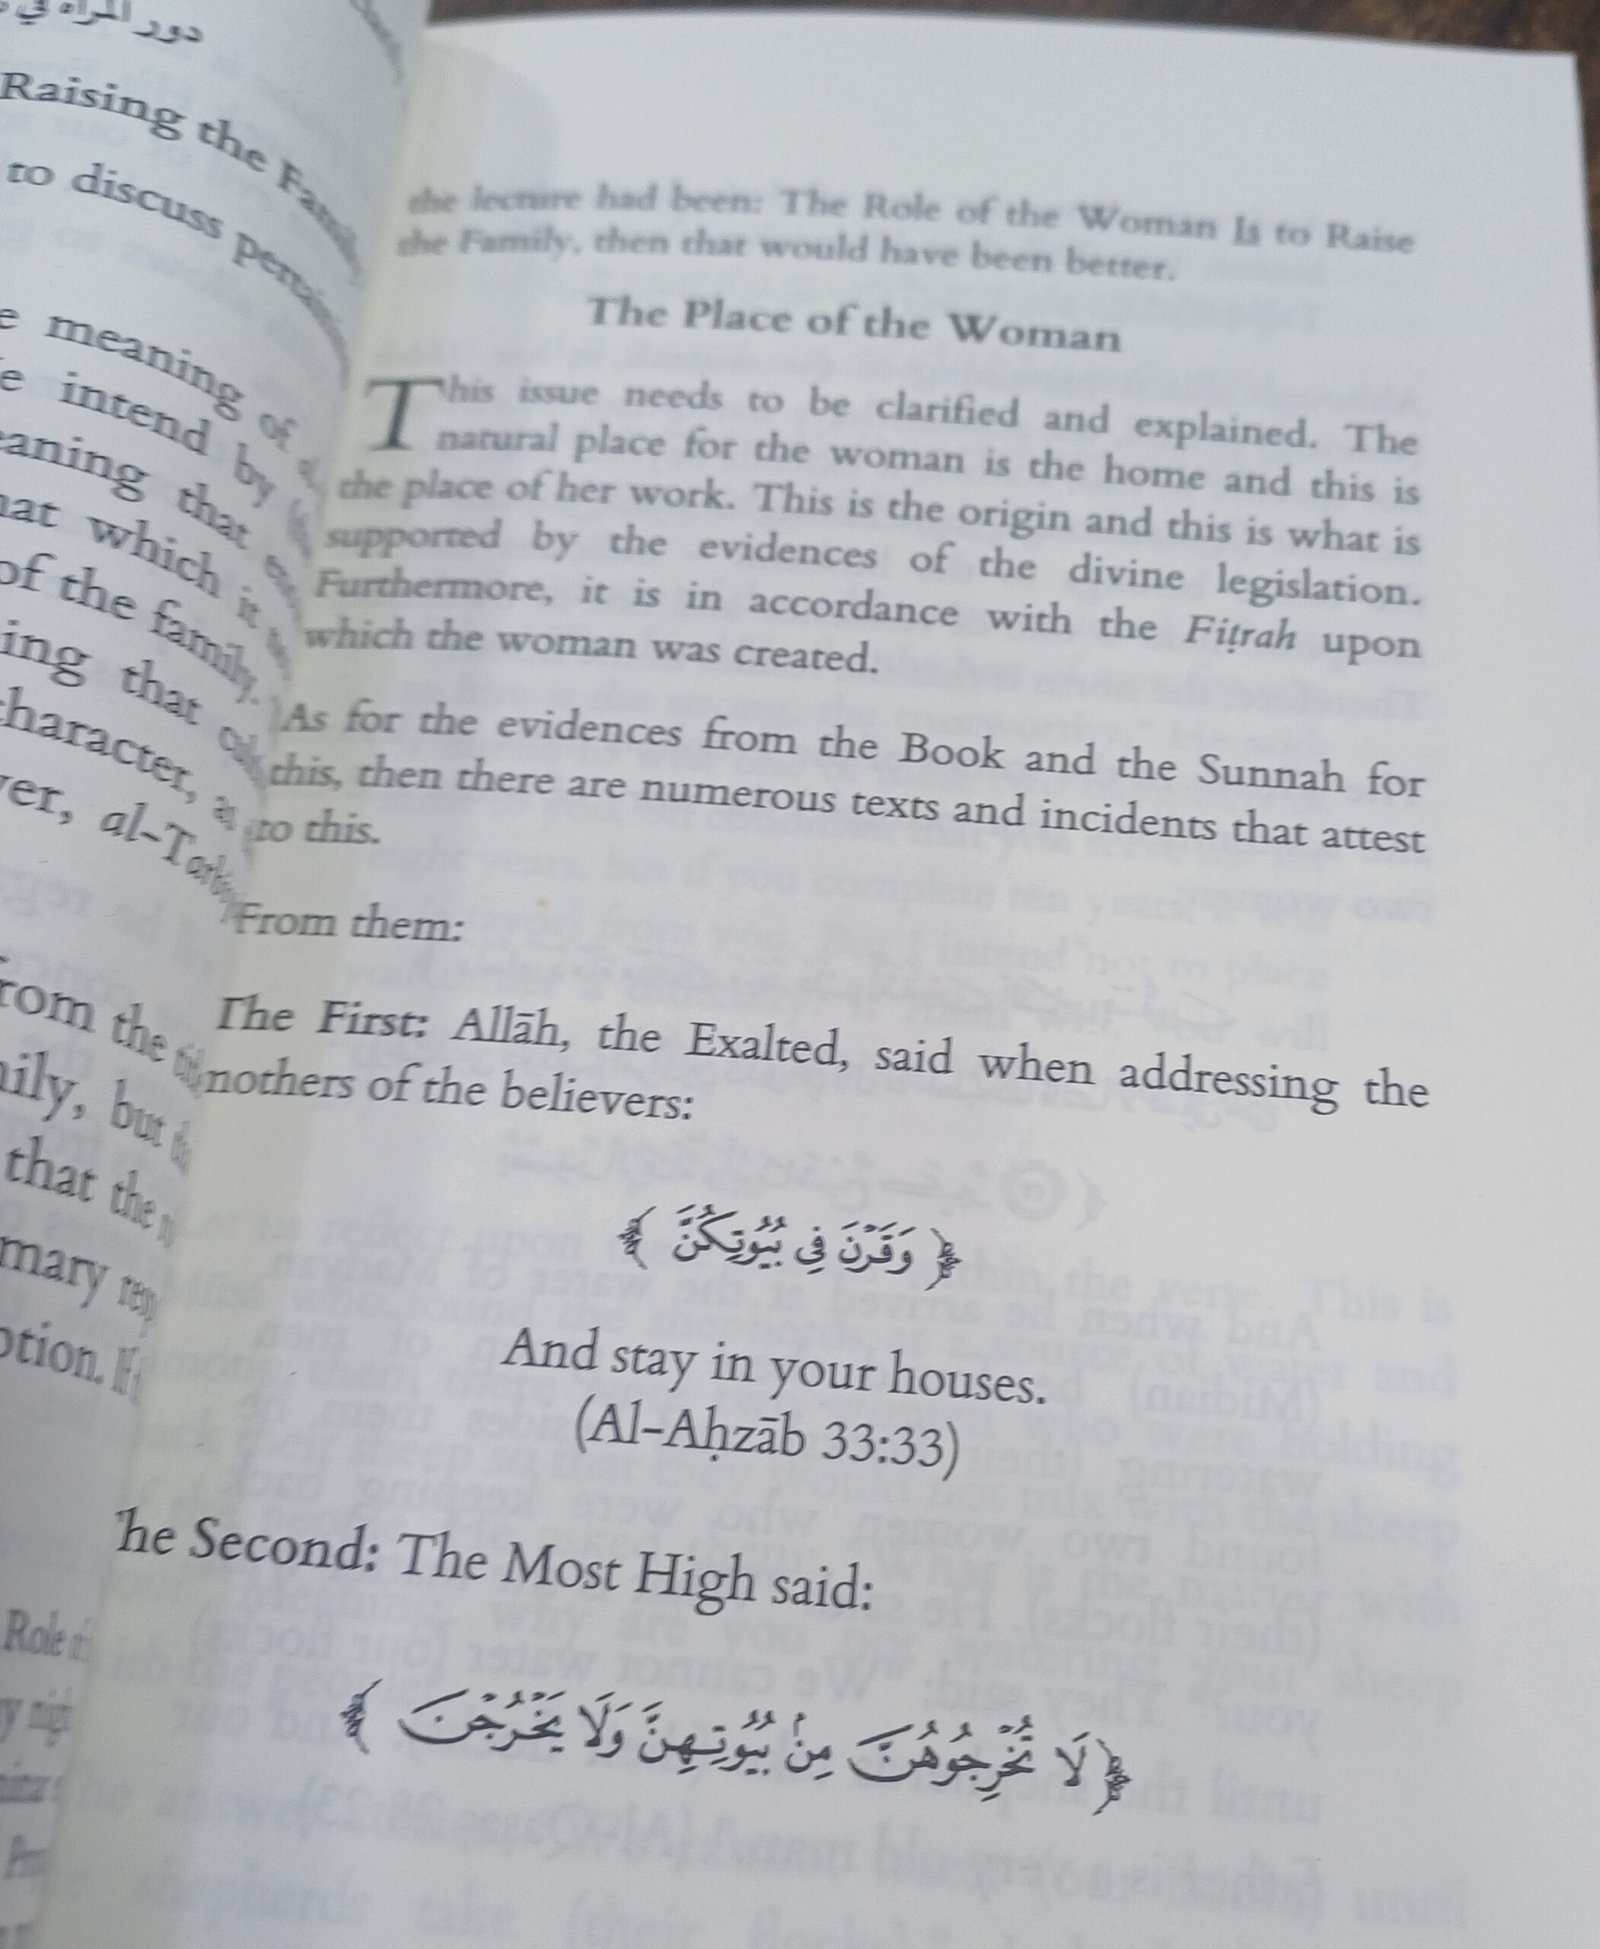 دور المرأة في
Raising the Family
to discuss
meaning of
intend by
that
which it
of the family.
ing that
character,
al-Tarbi
from the
but
that the
mary
Role
the lecture had been: The Role of the Woman Is to Raise
the Family, then that would have been better.
The Place of the Woman
This issue needs to be clarified and explained. The
natural place for the woman is the home and this is
the place of her work. This is the origin and this is what is
supported by the evidences of the divine legislation.
Furthermore, it is in accordance with the Fiṭrah upon
which the woman was created.
As for the evidences from the Book and the Sunnah for
this, then there are numerous texts and incidents that attest
to this.
From them:
The First: Allāh, the Exalted, said when addressing the
mothers of the believers:
﴿ وَقَرْنَ فِي بُيُوتِكُنَّ ﴾
And stay in your houses.
(Al-Aḥzāb 33:33)
he Second: The Most High said:
﴿ لَا تُخْرِجُوهُنَّ مِنۢ بُيُوتِهِنَّ وَلَا يَخْرُجْنَ ﴾